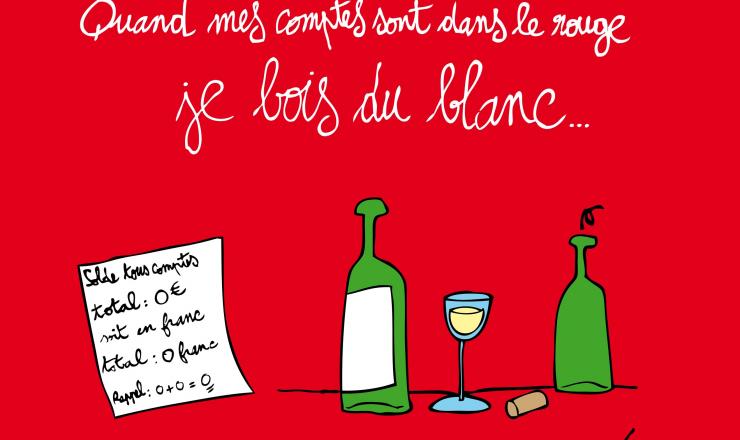 Quand mes comptes sont dans le rouge
je bois du blanc...
Solde tous comptes
total : 0€
soit en franc
total : 0 franc
Rappel : 0+0 = 0